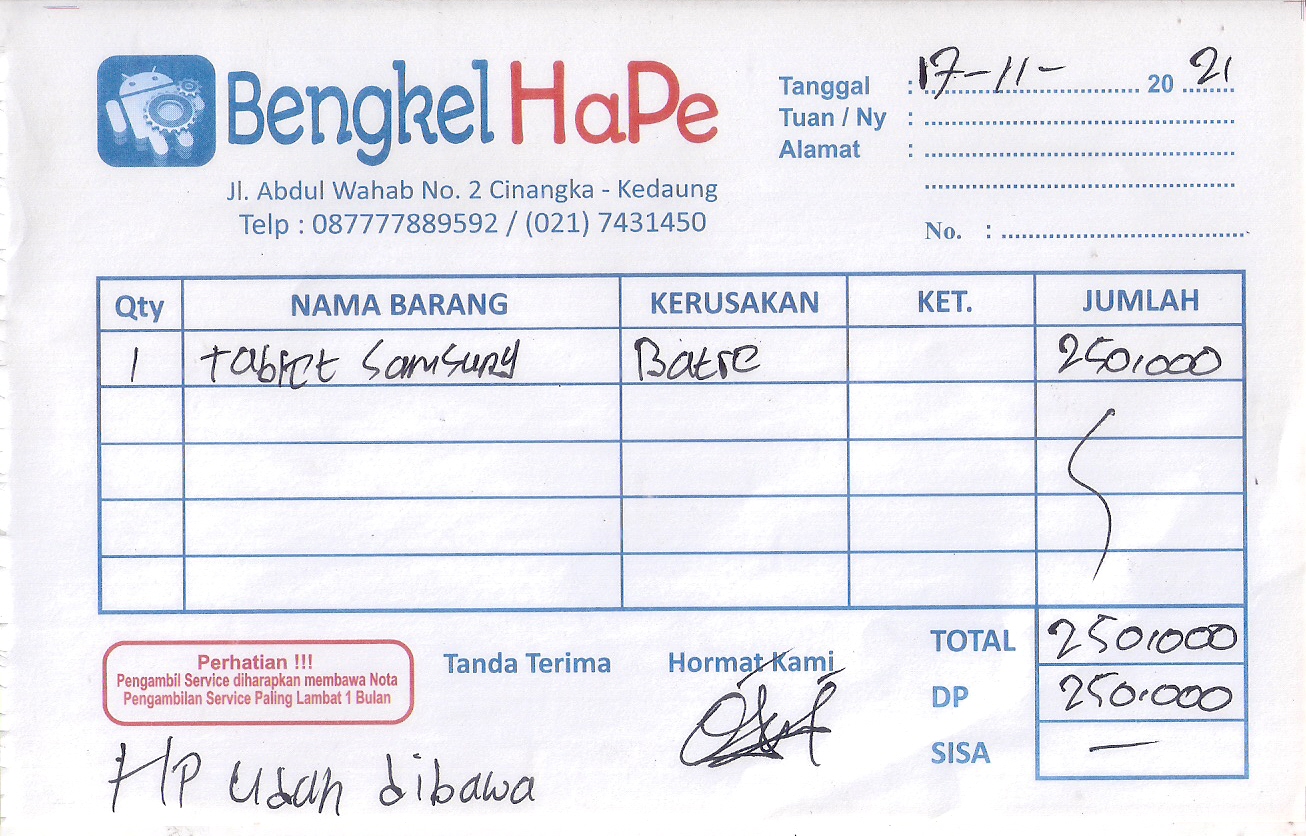 Bengkel HaPe
Jl. Abdul Wahab No. 2 Cinangka - Kedaung
Telp : 087777889592 / (021) 7431450
Tanggal : 17-11- 20 21
Tuan / Ny :
Alamat :
No. :
Qty NAMA BARANG KERUSAKAN KET. JUMLAH
1 tablet Samsung Batre 250.000
TOTAL 250.000
DP 250.000
SISA —
Perhatian !!!
Pengambil Service diharapkan membawa Nota
Pengambilan Service Paling Lambat 1 Bulan
Tanda Terima Hormat Kami
HP udah dibawa